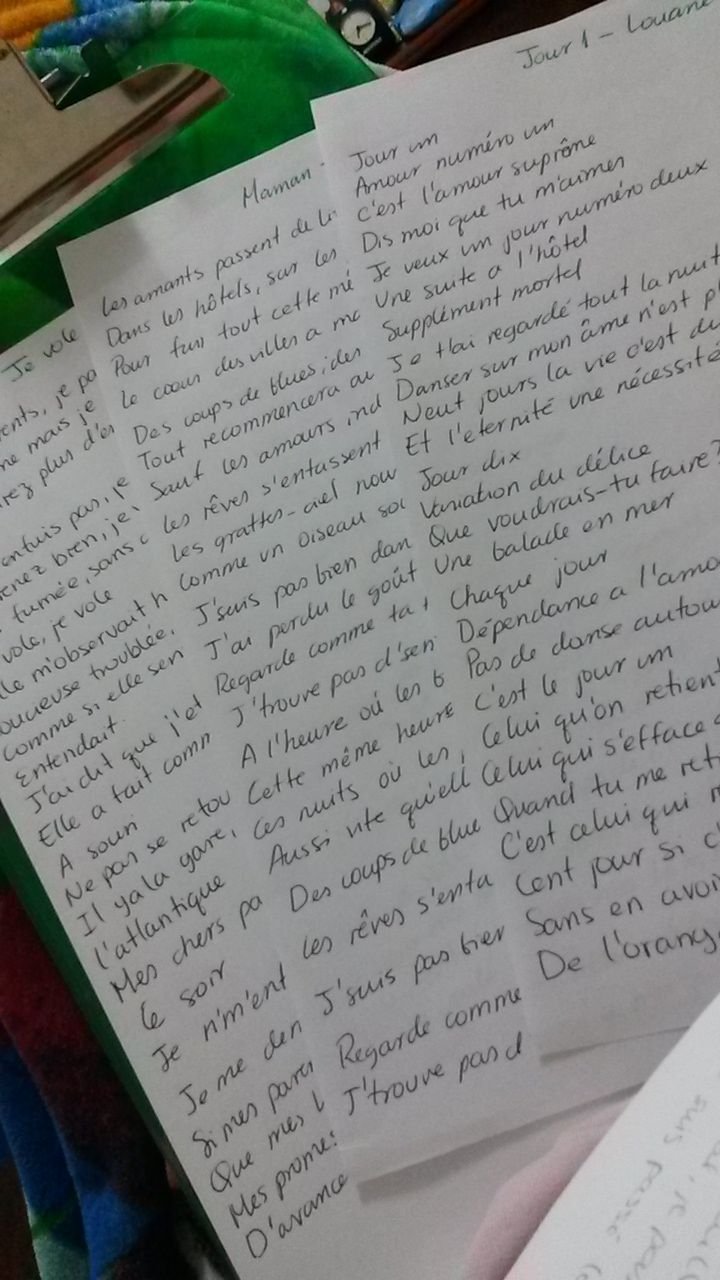 Je vole
ents, je pa
ne mais je
rez plus d'en
enfuis pas, je
enez bien, je
fumée, sans
vole, je vole
lle m'observait h
oucieuse troublée,
comme si elle sen
Entendait
J'ai dit que j'et
Elle a fait comm
A souri
Ne pas se retou
Il y a la gare,
l'atlantique
Mes chers pa
Le soir
Je n'm'ent
Je me den
Si mes paren
Que mes l
Mes promes
D'avance
Maman -
Les amants passent de li
Dans les hôtels, sur les
Pour fuir tout cette mé
Le cœur des villes a ma
Des coups de blues, des
Tout recommencera au
Sauf les amours ind
Les rêves s'entassent
Les grattes-ciel nou
Comme un oiseau sou
J'suis pas bien dan
J'ai perdu le goût
Regarde comme ta
J'trouve pas d'sen
A l'heure où les b
Cette même heure
Ces nuits où les
Aussi vite qu'ell
Des coups de blue
Les rêves s'enta
J'suis pas bien
Regarde comme
J'trouve pas d
Jour 1 - Louane
Jour un
Amour numéro un
C'est l'amour suprême
Dis moi que tu m'aimes
Je veux un jour numéro deux
Une suite a l'hôtel
Supplément mortel
Je t'ai regardé tout la nuit
Danser sur mon âme n'est pl
Neuf jours la vie c'est du
Et l'eternité une nécessité
Jour dix
Variation du délice
Que voudrais-tu faire?
Une balade en mer
Chaque jour
Dépendance a l'amo
Pas de danse autou
C'est le jour un
Celui qu'on retient
Celui qui s'efface
Quand tu me reti
C'est celui qui
Cent jour si c
Sans en avoi
De l'orang